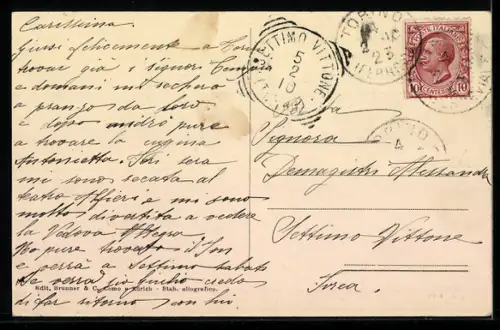 Carissima
Giunsi felicemente a
trovar già i signori
e domani mi recherò
a pranzo da loro
e dopo andrò pure
a trovare la cugina
Antonietta. Ieri sera
mi sono recata al
teatro Alfieri e mi sono
molto divertita a vedere
la Vedova Allegra.
Ho pure trovato il
e verrà a Settimo sabato
Se verrà giù credo
di far ritorno con lui
Edit. Brunner & C., Como e Zürich - Stab. eliografico.
SETTIMO VITTONE
TORINO
FERROVIA
POSTE ITALIANE
10 CENTESIMI 10
TORINO
4
Signora
Demagistri Alessandra
Settimo Vittone
Ivrea